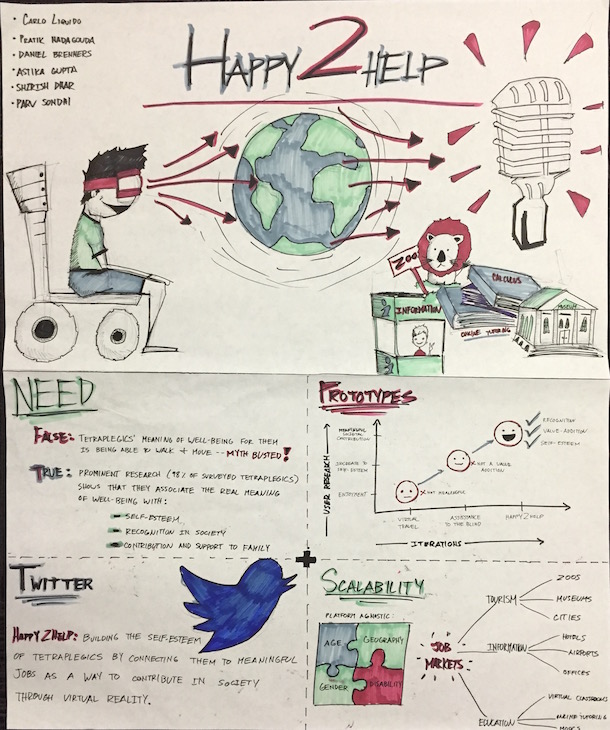 • CARLO LIQUIDO
• PRATIK NADAGOUDA
• DANIEL BRENNERS
• ASTIKA GUPTA
• SHIRISH DHAR
• PARV SONDHI
HAPPY 2 HELP
ZOO
INFORMATION
CALCULUS
ONLINE TUTORING
MUSEUM
NEED
FALSE: TETRAPLEGICS' MEANING OF WELL-BEING FOR THEM
IS BEING ABLE TO WALK + MOVE -- MYTH BUSTED!
TRUE: PROMINENT RESEARCH (98% OF SURVEYED TETRAPLEGICS)
SHOWS THAT THEY ASSOCIATE THE REAL MEANING
OF WELL-BEING WITH:
SELF-ESTEEM
RECOGNITION IN SOCIETY
CONTRIBUTION AND SUPPORT TO FAMILY
PROTOTYPES
USER RESEARCH
MEANINGFUL
SOCIETAL
CONTRIBUTION
INCREASE TO
SELF-ESTEEM
ENJOYMENT
✓ RECOGNITION
✓ VALUE-ADDITION
✓ SELF-ESTEEM
X NOT A VALUE
ADDITION
X NOT MEANINGFUL
VIRTUAL
TRAVEL
ASSISTANCE
TO THE BLIND
HAPPY2HELP
ITERATIONS
TWITTER
HAPPY2HELP: BUILDING THE SELF-ESTEEM
OF TETRAPLEGICS BY CONNECTING THEM TO MEANINGFUL
JOBS AS A WAY TO CONTRIBUTE IN SOCIETY
THROUGH VIRTUAL REALITY.
SCALABILITY
PLATFORM AGNOSTIC:
AGE
GEOGRAPHY
GENDER
DISABILITY
JOB
MARKETS
TOURISM
ZOOS
MUSEUMS
CITIES
INFORMATION
HOTELS
AIRPORTS
OFFICES
EDUCATION
VIRTUAL CLASSROOMS
ONLINE TUTORING
MOOCS